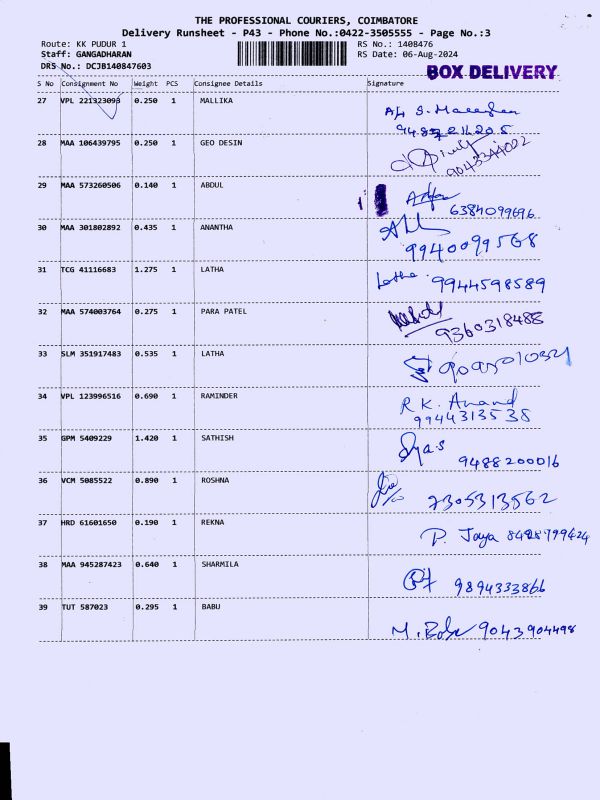 THE PROFESSIONAL COURIERS, COIMBATORE
Delivery Runsheet - P43 - Phone No.:0422-3505555 - Page No.:3
Route: KK PUDUR 1 RS No.: 1408476
Staff: GANGADHARAN RS Date: 06-Aug-2024
DRS No.: DCJB140847603
BOX DELIVERY
S No Consignment No Weight PCS Consignee Details Signature
27 VPL 221323093 0.250 1 MALLIKA
28 MAA 106439795 0.250 1 GEO DESIN
9043344002
29 MAA 573260506 0.140 1 ABDUL
6384099696
30 MAA 301802892 0.435 1 ANANTHA
9940099568
31 TCG 41116683 1.275 1 LATHA Latha 9944598589
32 MAA 574003764 0.275 1 PARA PATEL
9360318488
33 SLM 351917483 0.535 1 LATHA 9095010321
34 VPL 123996516 0.690 1 RAMINDER R.K. Anand
9944313538
35 GPM 5409229 1.420 1 SATHISH
9488200016
36 VCM 5085522 0.890 1 ROSHNA 7305313562
37 HRD 61601650 0.190 1 REKNA P. Jaya 8428799424
38 MAA 945287423 0.640 1 SHARMILA 9894333866
39 TUT 587023 0.295 1 BABU
M. Babu 9043904498